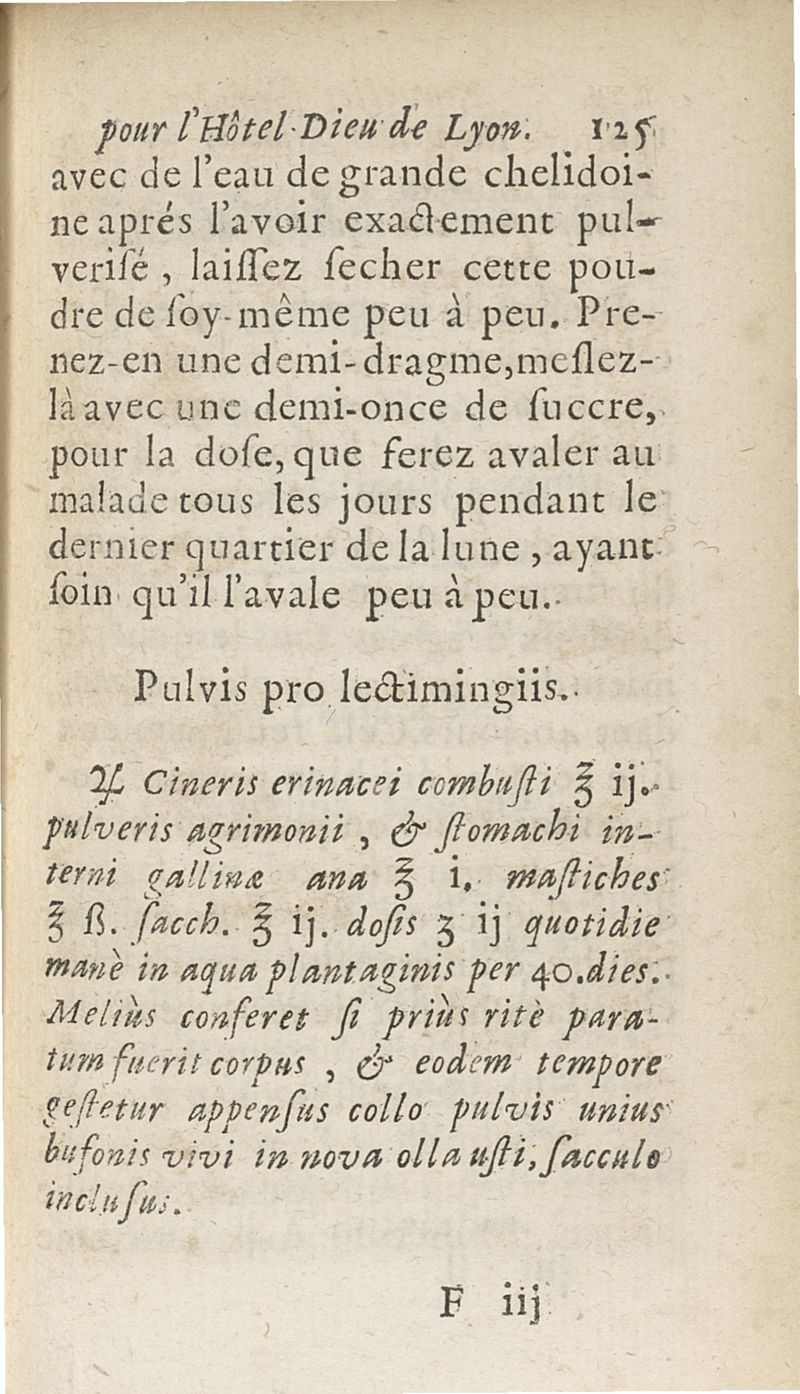 pour l'Hôtel-Dieu de Lyon. 125
avec de l'eau de grande chelidoi-
ne aprés l'avoir exactement pul-
veriſé , laiſſez ſecher cette pou-
dre de ſoy-même peu à peu. Pre-
nez-en une demi-dragme,meſlez-
là avec une demi-once de ſuccre,
pour la doſe, que ferez avaler au
malade tous les jours pendant le
dernier quartier de la lune , ayant
ſoin qu'il l'avale peu à peu.
Pulvis pro lectimingiis.
♃ Cineris erinacei combuſti ℥ ij.
pulveris agrimonii , & ſtomachi in-
terni gallinæ ana ℥ i. maſtiches
℥ ß. ſacch. ℥ ij. doſis ʒ ij quotidie
manè in aqua plantaginis per 40.dies.
Meliùs conferet ſi priùs ritè para-
tum fuerit corpus , & eodem tempore
geſtetur appenſus collo pulvis unius
bufonis vivi in nova olla uſti, ſacculo
incluſus.
F iij